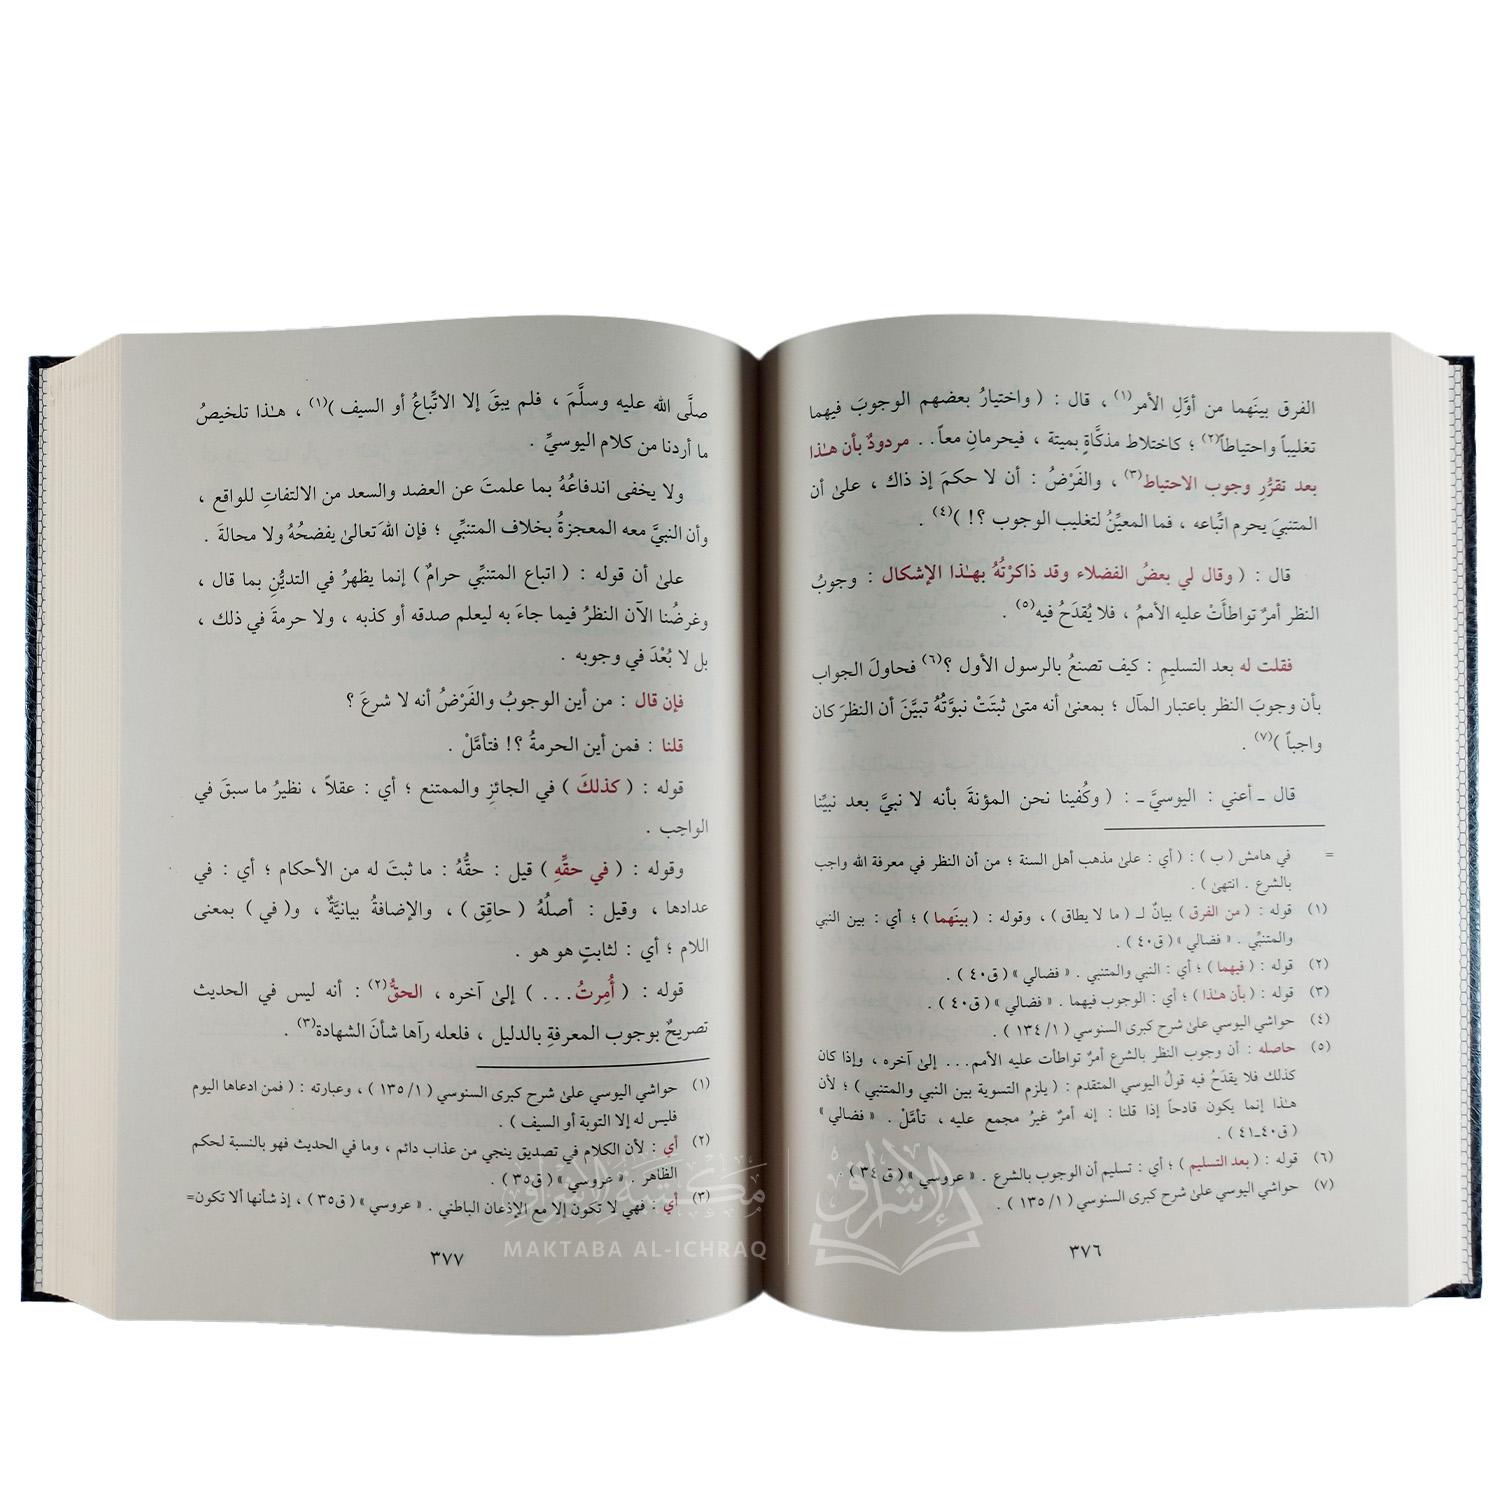 الفرق بينَهما من أوَّلِ الأمر(١) ، قال : ( واختيارُ بعضهم الوجوبَ فيهما
تغليباً واحتياطاً(٢) ؛ كاختلاط مذكَّاةٍ بميتة ، فيحرمانِ معاً . . مردودٌ بأن هـٰذا
بعد تقرُّرِ وجوب الاحتياط(٣) ، والفَرْضُ : أن لا حكمَ إذ ذاك ، علىٰ أن
المتنبيَ يحرم اتِّباعه ، فما المعيِّنُ لتغليب الوجوب ؟! )(٤) .
قال : ( وقال لي بعضُ الفضلاء وقد ذاكرْتُهُ بهـٰذا الإشكال : وجوبُ
النظر أمرٌ تواطأَتْ عليه الأممُ ، فلا يُقدَحُ فيه(٥) .
فقلت له بعد التسليمِ : كيف تصنعُ بالرسول الأول ؟(٦) فحاولَ الجواب
بأن وجوبَ النظر باعتبار المآل ؛ بمعنىٰ أنه متىٰ ثبتَتْ نبوَّتُهُ تبيَّنَ أن النظرَ كان
واجباً )(٧) .
قال ـ أعني : اليوسيَّ ـ : ( وكُفينا نحن المؤنةَ بأنه لا نبيَّ بعد نبيِّنا
= في هامش ( ب ) : ( أي : علىٰ مذهب أهل السنة ؛ من أن النظر في معرفة الله واجب
بالشرع . انتهىٰ ) .
(١) قوله : ( من الفرق ) بيانٌ لـ ( ما لا يطاق ) ، وقوله : ( بينَهما ) ؛ أي : بين النبي
والمتنبِّي . « فضالي » ( ق٤٠ ) .
(٢) قوله : ( فيهما ) ؛ أي : النبي والمتنبي . « فضالي » ( ق٤٠ ) .
(٣) قوله : ( بأن هـٰذا ) ؛ أي : الوجوب فيهما . « فضالي » ( ق٤٠ ) .
(٤) حواشي اليوسي علىٰ شرح كبرى السنوسي ( ١/ ١٣٤ ) .
(٥) حاصله : أن وجوب النظر بالشرع أمرٌ تواطأت عليه الأمم... إلىٰ آخره ، وإذا كان
كذلك فلا يقدَحُ فيه قولُ اليوسي المتقدم : ( يلزم التسوية بين النبي والمتنبي ) ؛ لأن
هـٰذا إنما يكون قادحاً إذا قلنا : إنه أمرٌ غيرُ مجمع عليه ، تأمَّلْ . « فضالي »
( ق٤٠ـ٤١ ) .
(٦) قوله : ( بعد التسليم ) ؛ أي : تسليم أن الوجوب بالشرع . « عروسي » ( ق٣٤ ) .
(٧) حواشي اليوسي علىٰ شرح كبرى السنوسي ( ١/ ١٣٥ ) .
٣٧٦
صلَّى الله عليه وسلَّمَ ، فلم يبقَ إلا الاتِّباعُ أو السيف )(١) ، هـٰذا تلخيصُ
ما أردنا من كلام اليوسيِّ .
ولا يخفى اندفاعُهُ بما علمتَ عن العضد والسعد من الالتفاتِ للواقع ،
وأن النبيَّ معه المعجزةُ بخلاف المتنبِّي ؛ فإن اللهَ تعالىٰ يفضحُهُ ولا محالةَ .
علىٰ أن قوله : ( اتباع المتنبِّي حرامٌ ) إنما يظهرُ في التديُّنِ بما قال ،
وغرضُنا الآن النظرُ فيما جاءَ به ليعلم صدقه أو كذبه ، ولا حرمةَ في ذلك ،
بل لا بُعْدَ في وجوبه .
فإن قال : من أين الوجوبُ والفَرْضُ أنه لا شرعَ ؟
قلنا : فمن أين الحرمةُ ؟! فتأمَّلْ .
قوله : ( كذلكَ ) في الجائزِ والممتنع ؛ أي : عقلاً ، نظيرُ ما سبقَ في
الواجب .
وقوله : ( في حقِّهِ ) قيل : حقُّهُ : ما ثبتَ له من الأحكام ؛ أي : في
عدادها ، وقيل : أصلُهُ ( حاقِق ) ، والإضافةُ بيانيَّةٌ ، و( في ) بمعنى
اللام ؛ أي : لثابتٍ هو هو .
قوله : ( أُمِرتُ . . . ) إلىٰ آخره ، الحقُّ(٢) : أنه ليس في الحديث
تصريحٌ بوجوب المعرفةِ بالدليل ، فلعله رآها شأنَ الشهادة(٣) .
(١) حواشي اليوسي علىٰ شرح كبرى السنوسي ( ١/ ١٣٥ ) ، وعبارته : ( فمن ادعاها اليوم
فليس له إلا التوبة أو السيف ) .
(٢) أي : لأن الكلام في تصديق ينجي من عذاب دائم ، وما في الحديث فهو بالنسبة لحكم
الظاهر . « عروسي » ( ق٣٥ ) .
(٣) أي : فهي لا تكون إلا مع الإذعان الباطني . « عروسي » ( ق٣٥ ) ، إذ شأنها ألا تكون=
٣٧٧
مكتبة الإشراق
MAKTABA AL-ICHRAQ
الإشراق